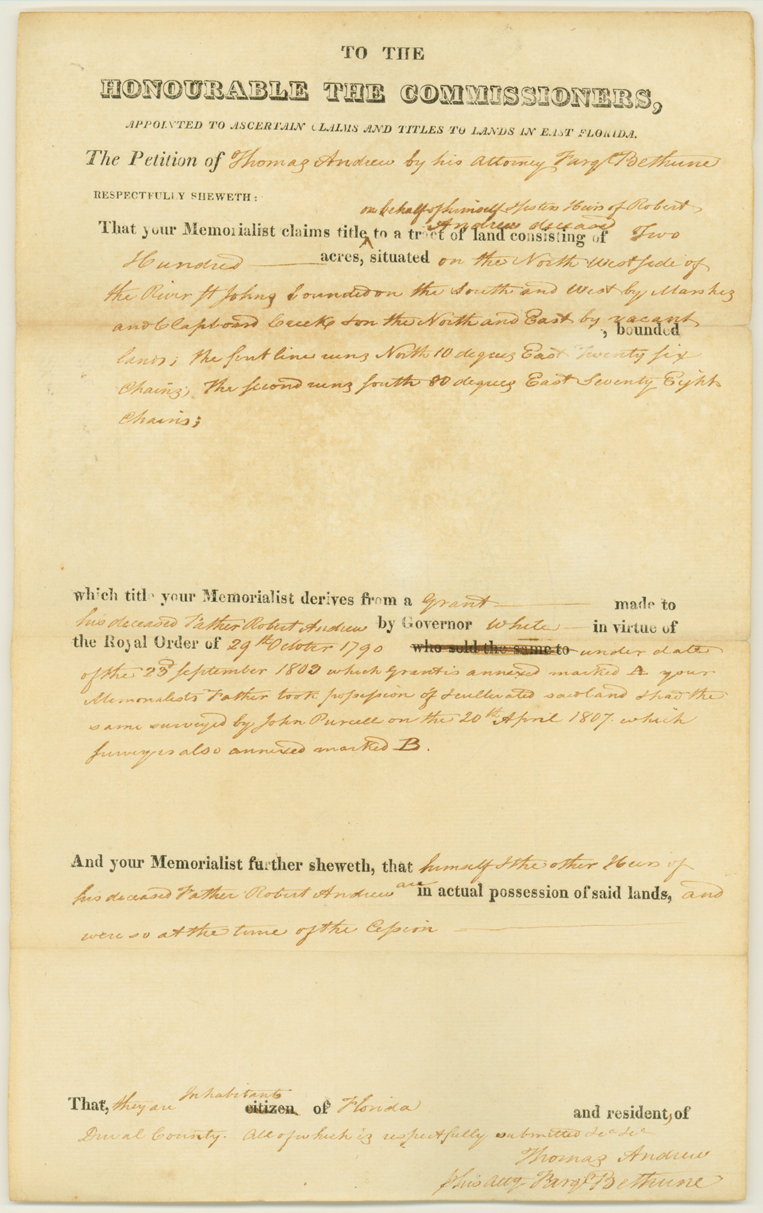 TO THE
HONOURABLE THE COMMISSIONERS,
APPOINTED TO ASCERTAIN CLAIMS AND TITLES TO LANDS IN EAST FLORIDA.
The Petition of Thomas Andrew by his Attorney Farqr Bethune
RESPECTFULLY SHEWETH:
on behalf of himself & Heirs of Robert
Andrew deceased
That your Memorialist claims title to a tract of land consisting of Two
Hundred acres, situated on the North West side of
the River St Johns bounded on the South and West by Marshes
and Clapboard Creek & on the North and East by vacant
, bounded
lands; the first line runs North 10 degrees East Twenty six
Chains; The second runs South 80 degrees East Seventy Eight
Chains;
which title your Memorialist derives from a Grant made to
his deceased Father Robert Andrew by Governor White in virtue of
the Royal Order of 29th October 1790 who sold the same to under date
of the 23d September 1803 which Grant is annexed marked A your
Memorialists Father took possession of & cultivated said land & had the
same surveyed by John Purcell on the 20th April 1807 which
survey is also annexed marked B.
And your Memorialist further sheweth, that himself & the other Heirs of
his deceased Father Robert Andrew are in actual possession of said lands, and
were so at the time of the Cession
That, they are Inhabitants citizen of Florida and resident, of
Duval County. All of which is respectfully submitted &c &c
Thomas Andrew
p his Atty Farqr Bethune